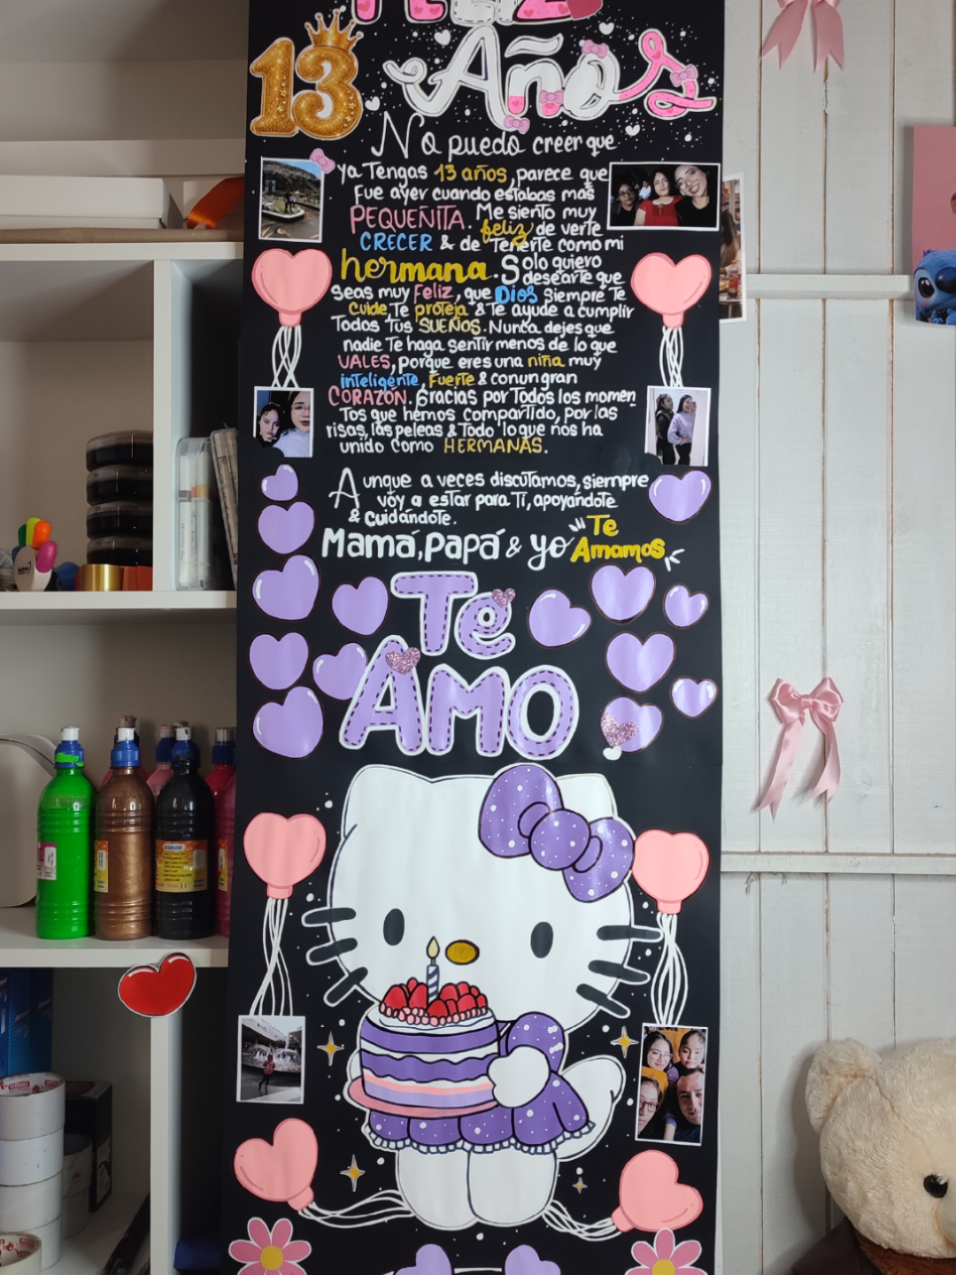 FELIZ
13 Años
No puedo creer que
ya Tengas 13 años, parece que
Fue ayer cuando estabas más
PEQUEÑITA. Me siento muy
feliz de verte
CRECER & de Tenerte como mi
hermana. Solo quiero
desearte que
seas muy Feliz, que Dios siempre Te
cuide Te proteja & Te ayude a cumplir
Todos Tus SUEÑOS. Nunca dejes que
nadie Te haga sentir menos de lo que
VALES, porque eres una niña muy
inteligente, Fuerte & con un gran
CORAZÓN. Gracias por Todos los momen
Tos que hemos compartido, por las
risas, las peleas & Todo lo que nos ha
unido como HERMANAS.
Aunque a veces discutamos, siempre
voy a estar para Ti, apoyándote
& cuidándote.
Mamá, papá & yo Te
Amamos
Te
AMO